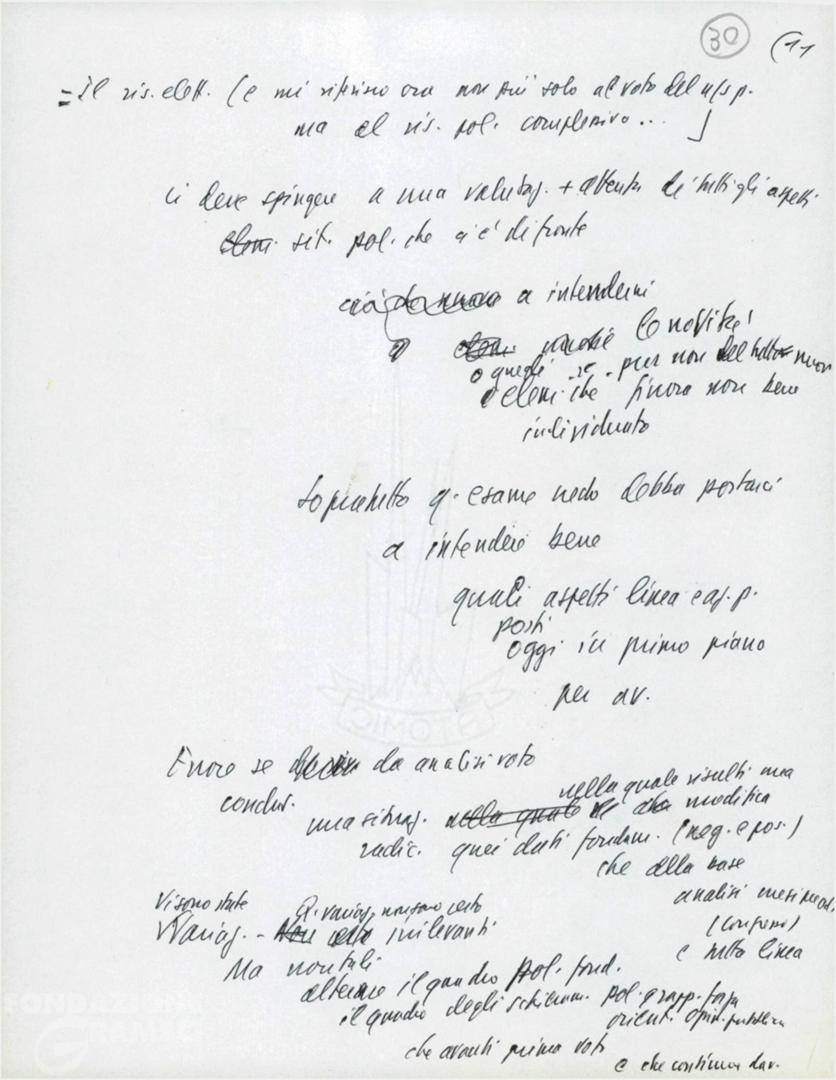 30 (11
= Il ris. elett. (e mi riferisco ora non più solo al voto del
ma al ris. pol. complessivo...
ci deve spingere a una valutaz. + attenta di tutti gli aspetti
sit. pol. che ci è di fronte
a intenderci
le novità
o quegli se pur non del tutto nuovi
elem. che finora non bene
individuato
Sopratutto q. esame credo debba portarci
a intendere bene
quali aspetti linea e az. p.
posti
oggi in primo piano
per av.
Errore se da analisi voto
nella quale risulti una
conclus.
una situaz. modifica
radic. quei dati fondam. (neg. e pos.)
che alla base
analisi
(Congresso)
e tutta linea
Vi sono state Q. variaz. non sono certo
Variaz. - irrilevanti
Ma non tali
alterare il quadro pol. fond.
il quadro degli schieram. pol. rapp. forza
orient. opin. pubblica
che avanti prima voto
e che continua dav.
FONDAZIONE